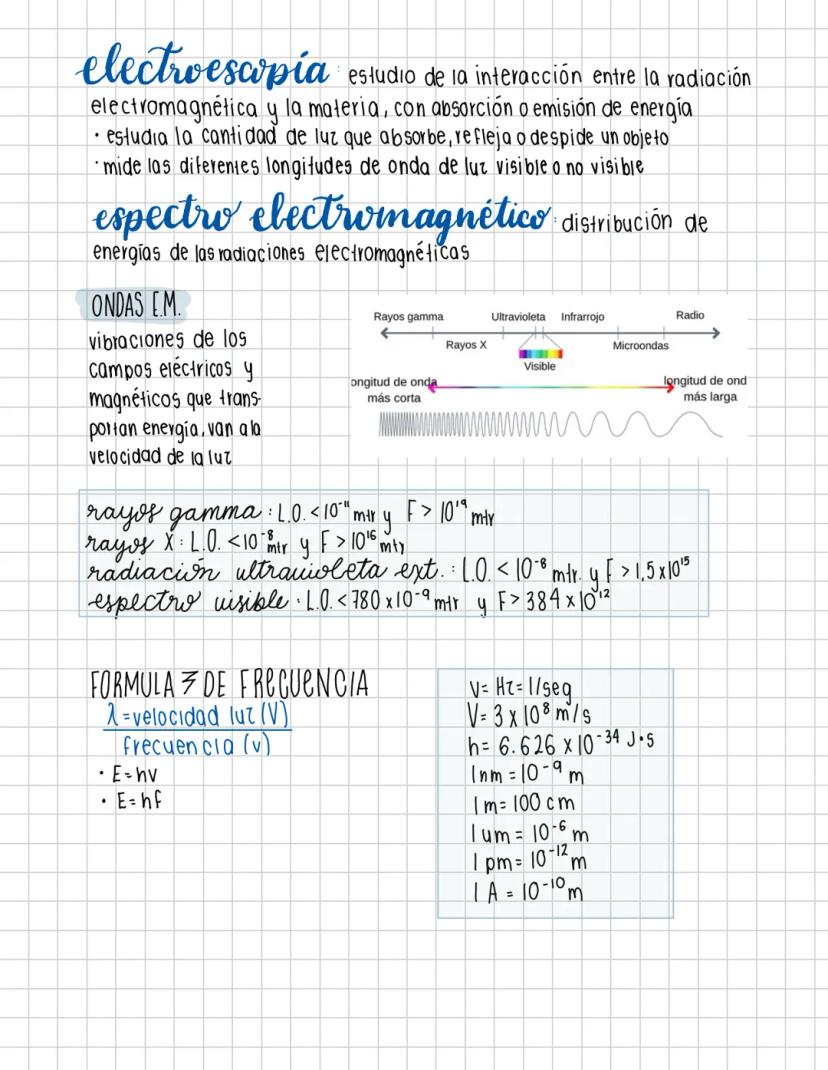 electroescopía: estudio de la interacción entre la radiación
electromagnética y la materia, con absorción o emisión de energía
· estudia la cantidad de luz que absorbe, refleja o despide un objeto
· mide las diferentes longitudes de onda de luz visible o no visible
espectro electromagnético: distribución de
energías de las radiaciones electromagnéticas
ONDAS E.M.
vibraciones de los
campos eléctricos y
magnéticos que trans-
portan energía, van a la
velocidad de la luz
Rayos gamma Ultravioleta Infrarrojo Radio
Rayos X Microondas
Visible
ongitud de onda longitud de ond
más corta más larga
rayos gamma : L.O. < 10⁻¹¹ mtr y F > 10¹⁹ mtr
rayos X : L.O. < 10⁻⁸ mtr y F > 10¹⁶ mtr
radiación ultravioleta ext. : L.O. < 10⁻⁸ mtr. y F > 1,5 x 10¹⁵
espectro visible : L.O. < 780 x 10⁻⁹ mtr y F > 384 x 10¹²
FORMULA DE FRECUENCIA
λ = velocidad luz (V)
frecuencia (v)
· E = hv
· E = hf
V = Hz = 1/seg
V = 3 x 10⁸ m/s
h = 6.626 x 10⁻³⁴ J·s
1nm = 10⁻⁹ m
1 m = 100 cm
1 um = 10⁻⁶ m
1 pm = 10⁻¹² m
1 A = 10⁻¹⁰ m